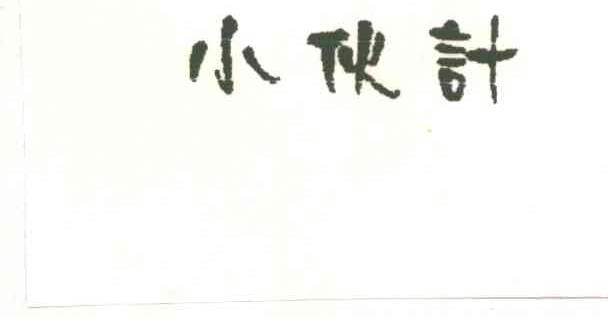 小伙計